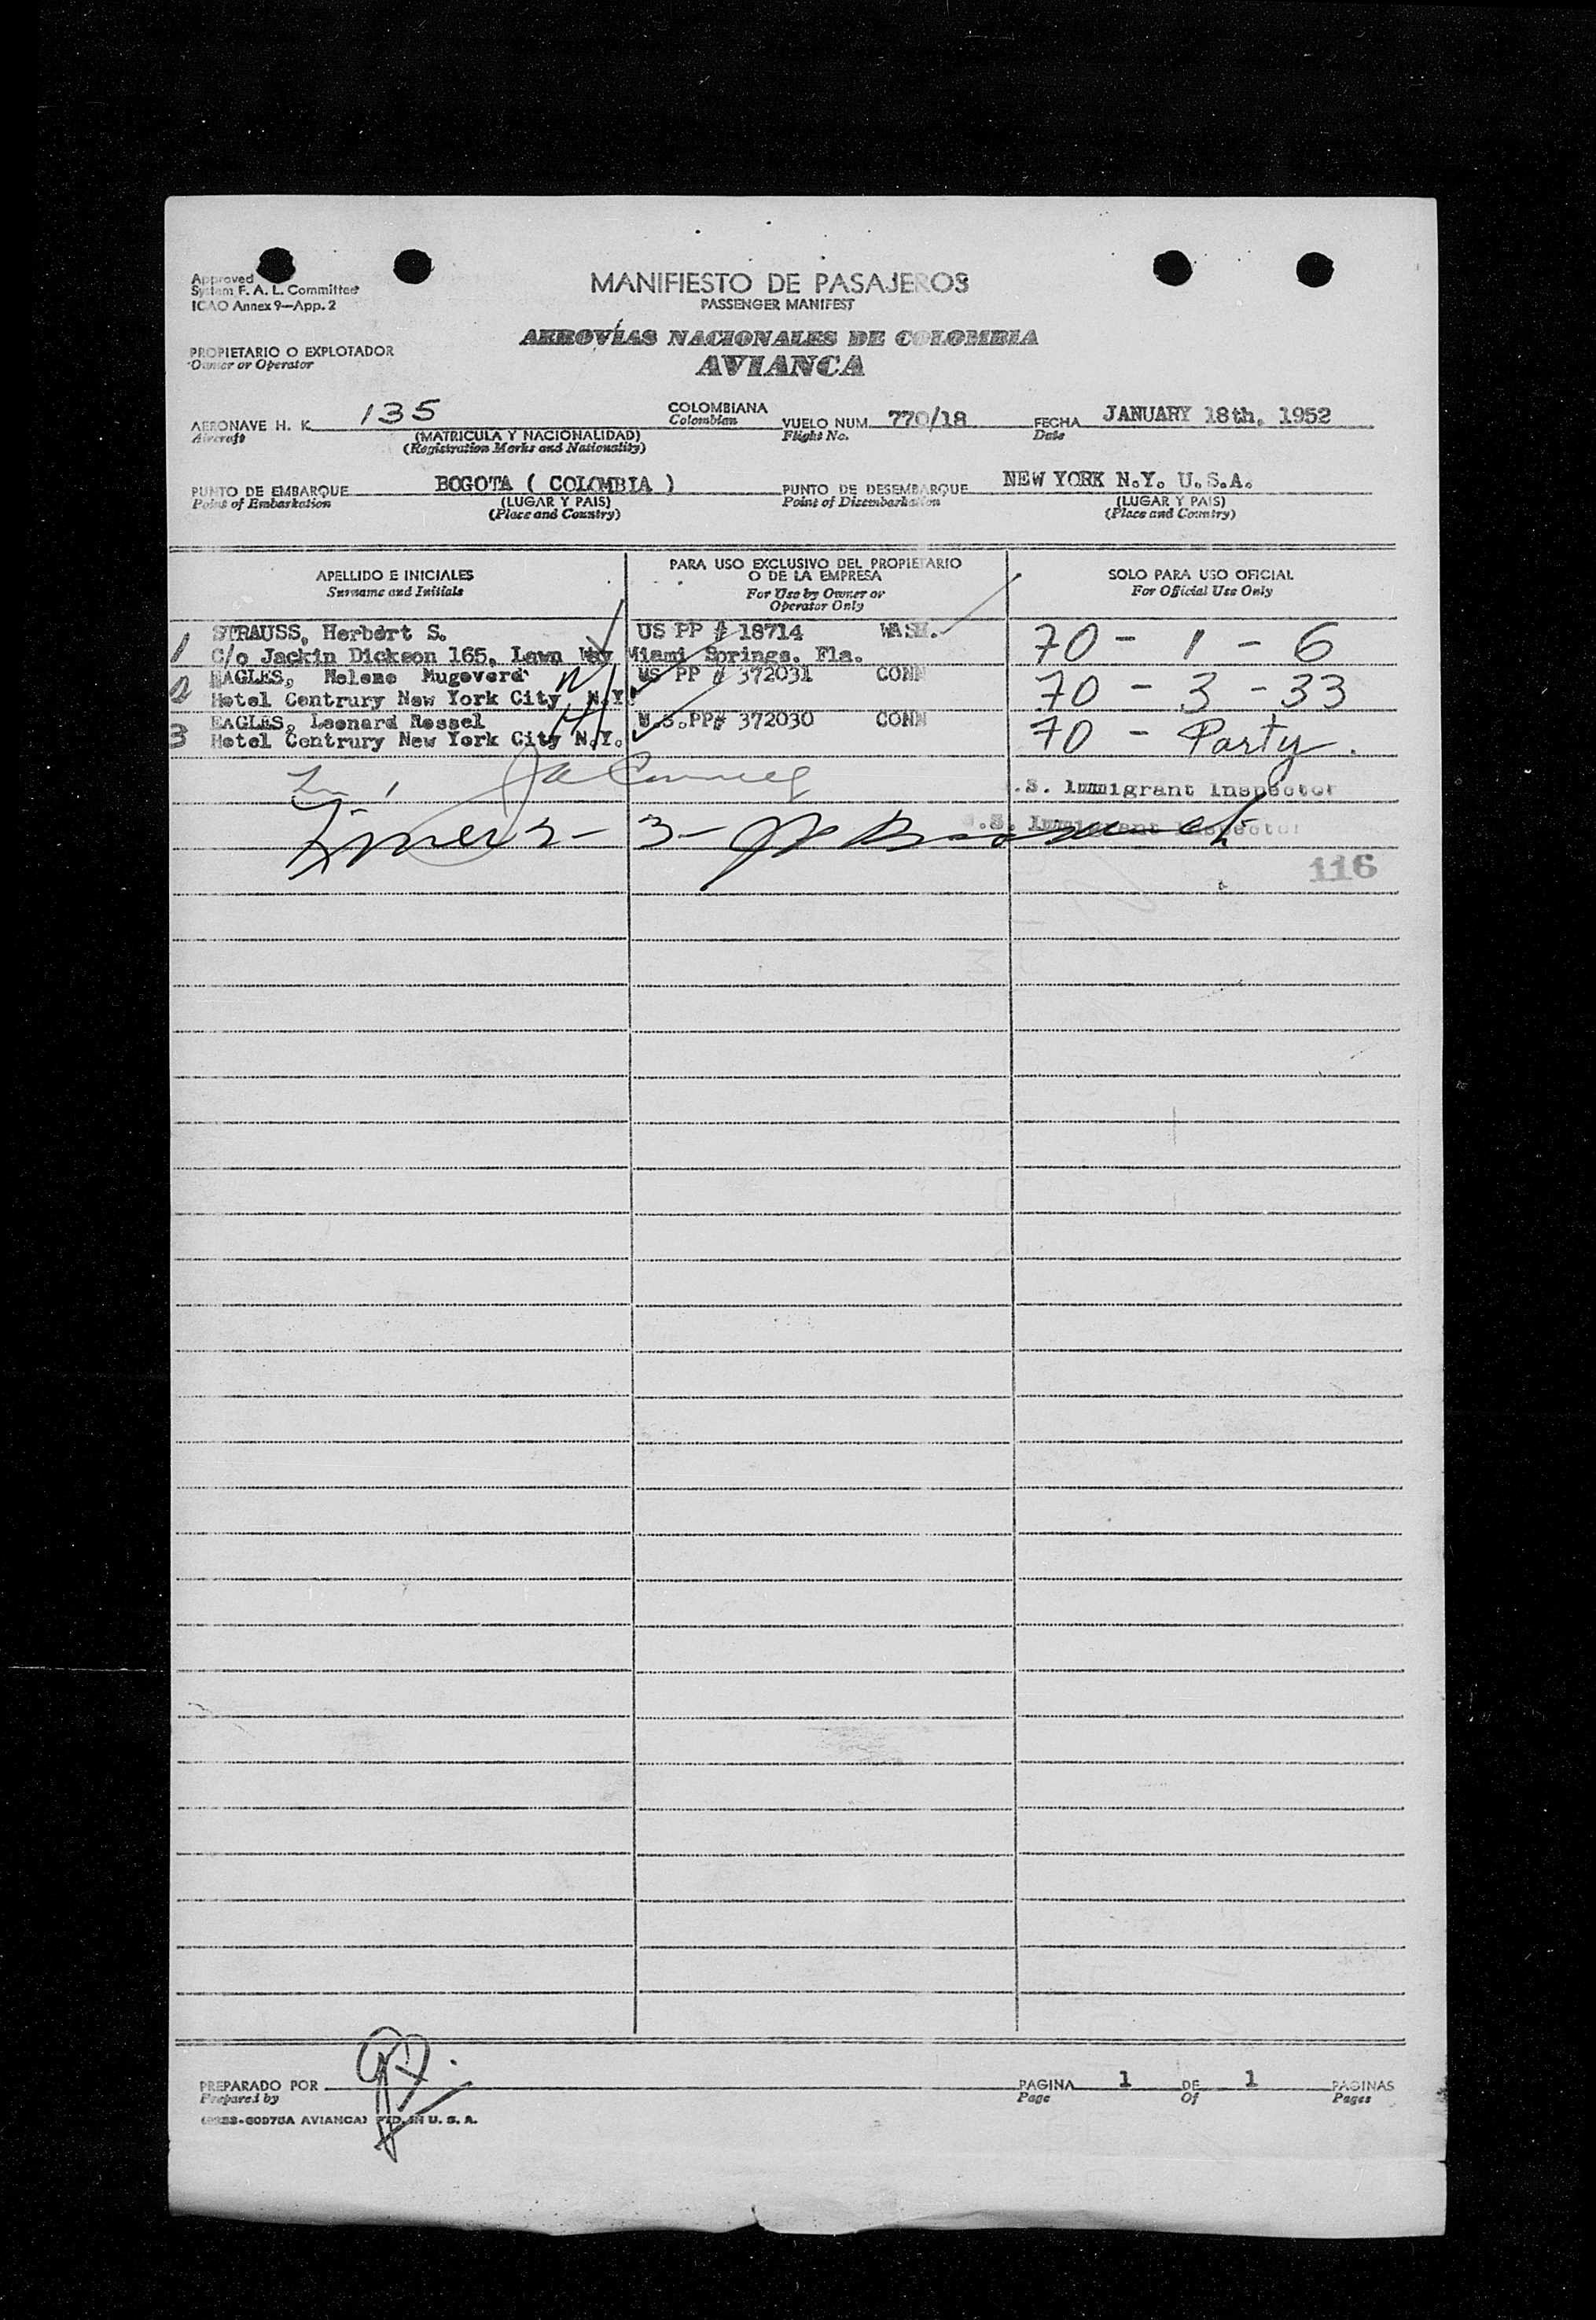 Approved
System F. A. L. Committee
ICAO Annex 9—App. 2
MANIFIESTO DE PASAJEROS
PASSENGER MANIFEST
AEROVÍAS NACIONALES DE COLOMBIA
AVIANCA
PROPIETARIO O EXPLOTADOR
Owner or Operator
AERONAVE H. K. 135 COLOMBIANA VUELO NUM. 770/18 FECHA JANUARY 18th, 1952
Aircraft (MATRICULA Y NACIONALIDAD) Colombian Flight No. Date
(Registration Marks and Nationality)
PUNTO DE EMBARQUE BOGOTA ( COLOMBIA ) PUNTO DE DESEMBARQUE NEW YORK N.Y. U.S.A.
Point of Embarkation (LUGAR Y PAIS) Point of Disembarkation (LUGAR Y PAIS)
(Place and Country) (Place and Country)
APELLIDO E INICIALES PARA USO EXCLUSIVO DEL PROPIETARIO O DE LA EMPRESA SOLO PARA USO OFICIAL
Surname and Initials For Use by Owner or Operator Only For Official Use Only
1 STRAUSS, Herbert S. US PP # 18714 WASH. 70 - 1 - 6
C/o Jackin Dickson 165, Lawn Way Miami Springs. Fla.
2 EAGLES, Helene Mugoverd US PP # 372031 CONN 70 - 3 - 33
Hotel Centrury New York City N.Y.
3 EAGLES, Leonard Rossel U.S.PP# 372030 CONN 70 - Party.
Hotel Centrury New York City N.Y.
.S. Immigrant Inspector
3 -
.S. Immigrant Inspector
116
PREPARADO POR
Prepared by
PAGINA 1 DE 1 PAGINAS
Page Of Pages
AVIANCA) PTD. IN U. S. A.